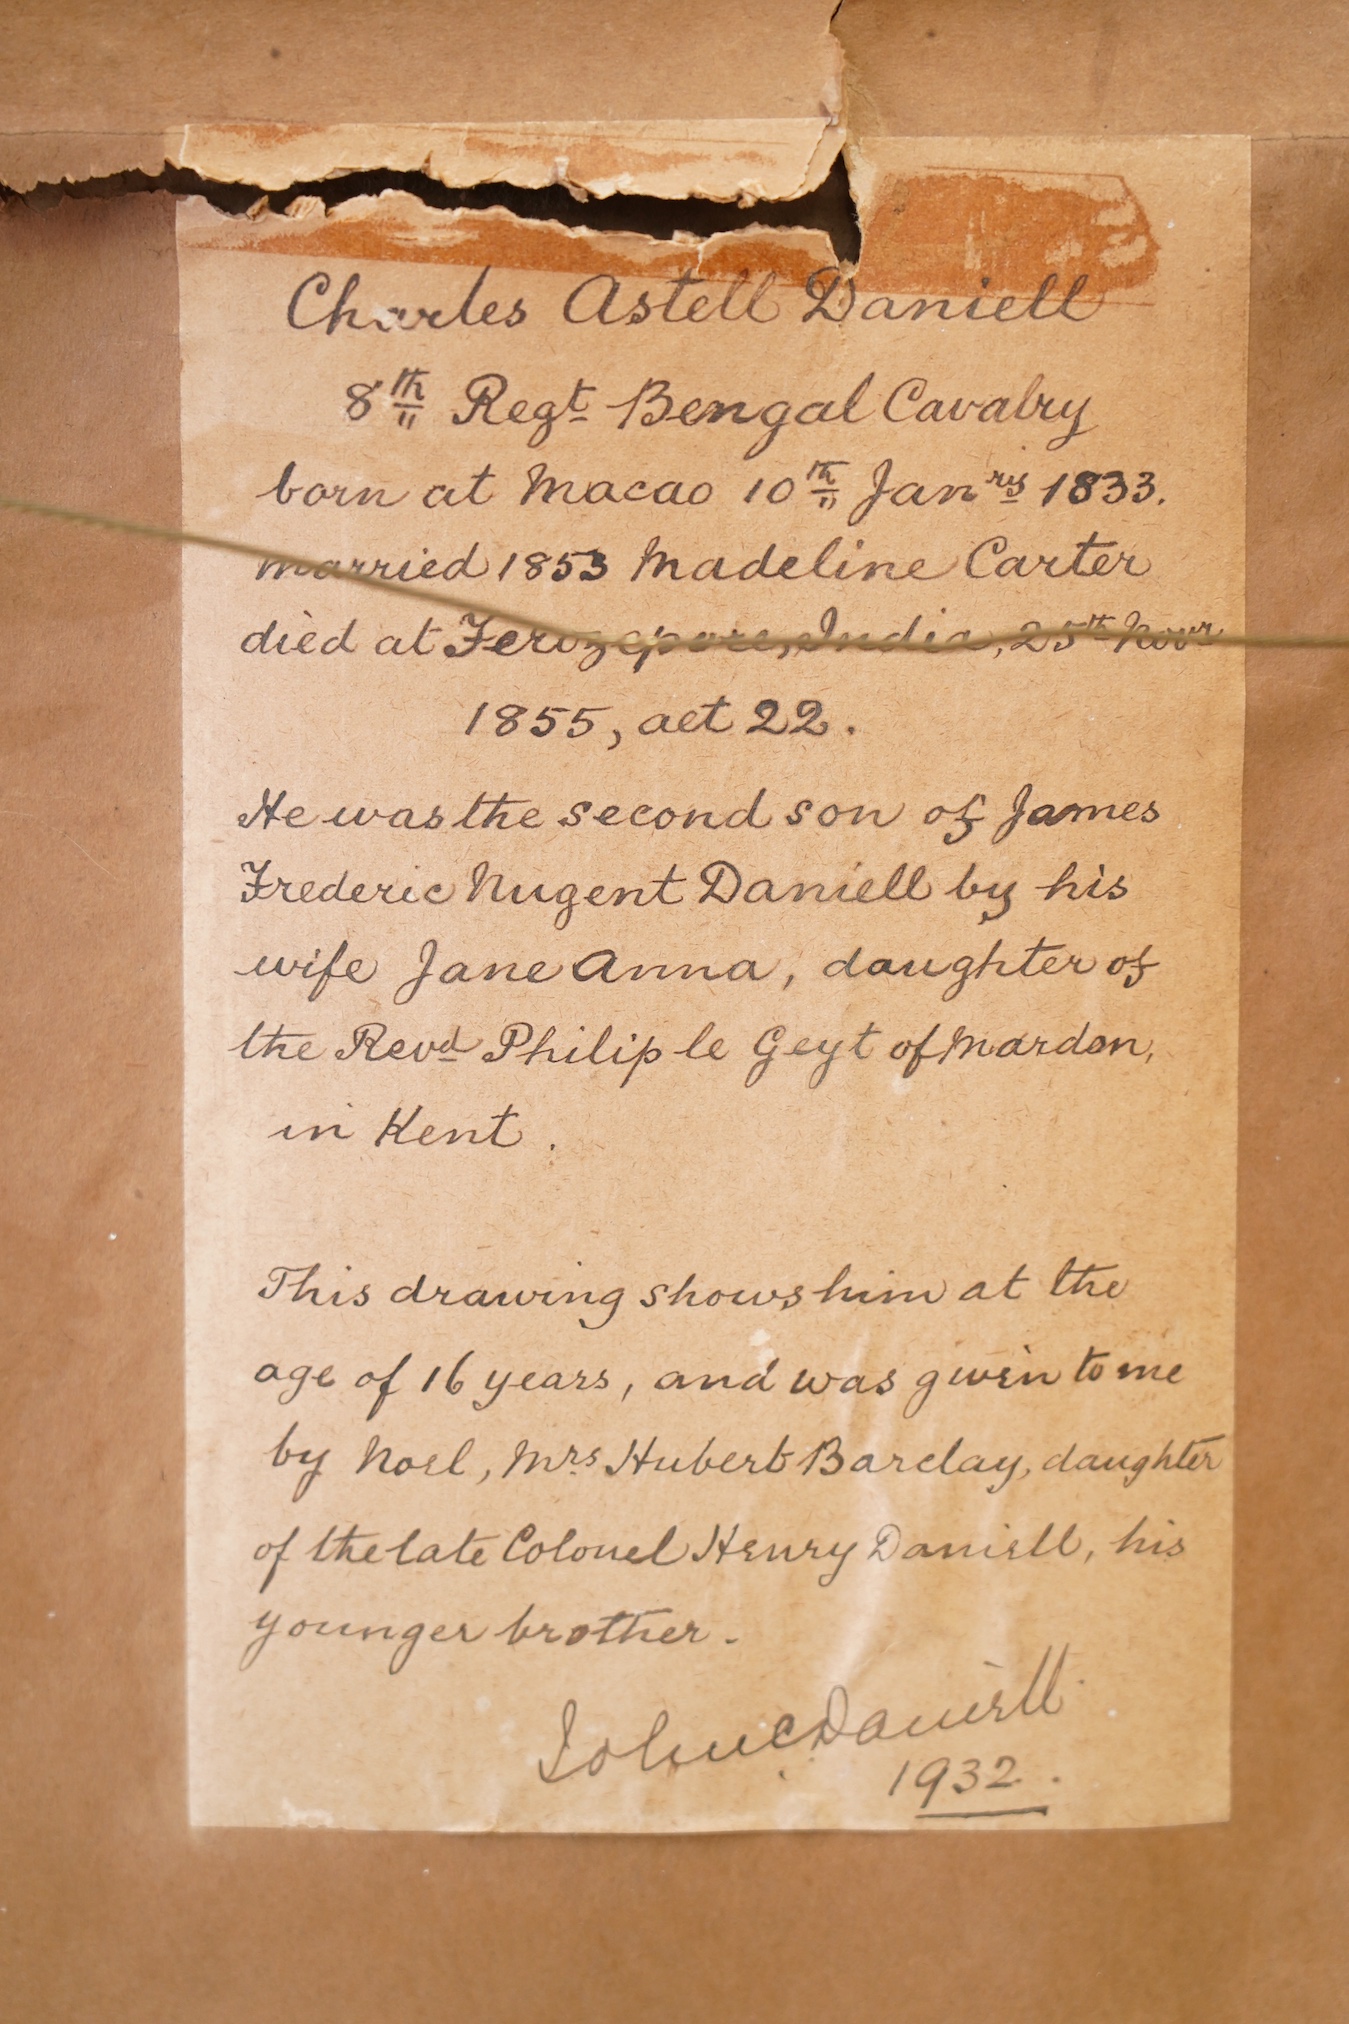 Charles Astell Daniell
8th Regt Bengal Cavalry
born at Macao 10th Janry 1833.
married 1853 Madeline Carter
died at Ferozepore, India, 25th Novr
1855, aet 22.
He was the second son of James
Frederic Nugent Daniell by his
wife Jane Anna, daughter of
the Revd Philip le Geyt of Mardon,
in Kent.
This drawing shows him at the
age of 16 years, and was given to me
by Noel, Mrs Hubert Barclay, daughter
of the late Colonel Henry Daniell, his
younger brother.
John C Daniell
1932.